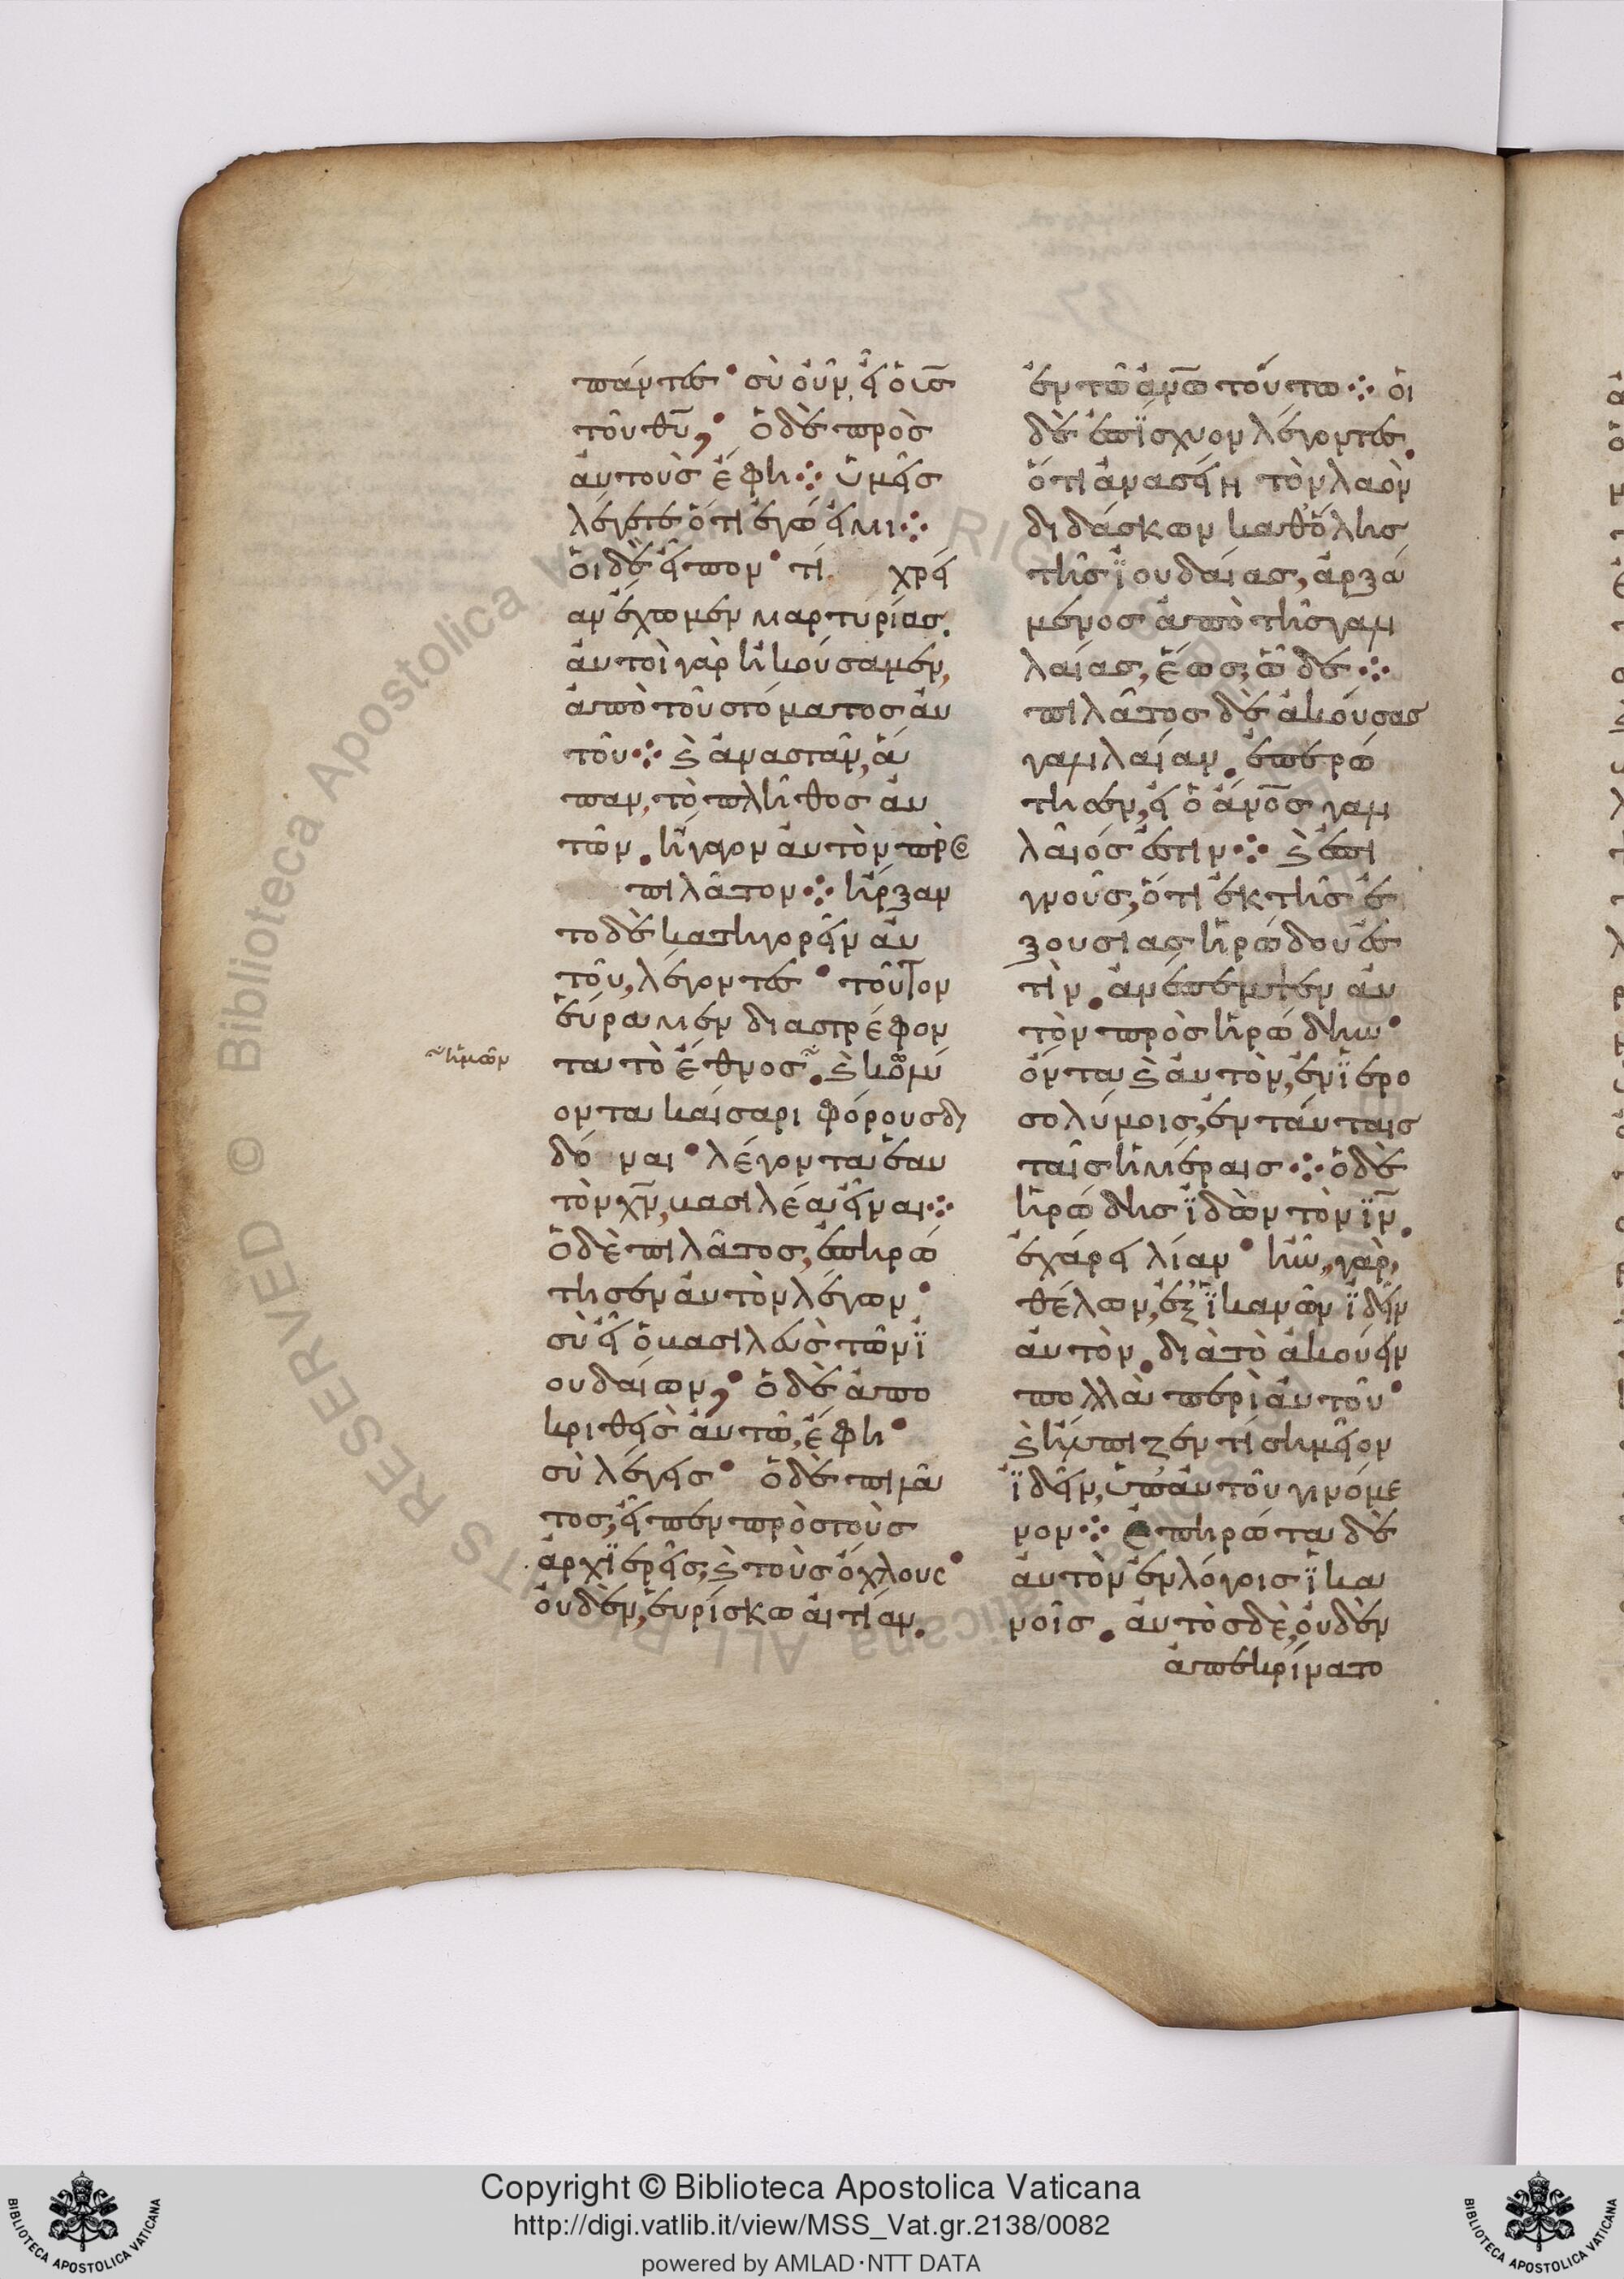 πάντες· σὺ οὖν, εἶ ὁ υς̅
τοῦ θυ̅, ὁ δὲ πρὸς
αὐτοὺς ἔφη⁘ ὑμεῖς
λέγετε ὅτι ἐγώ εἰμι⁘
οἱ δὲ εἶπον· τί χρεί
αν ἔχωμεν μαρτυρίας.
αὐτοὶ γὰρ ἠκούσαμεν,
ἀπὸ τοῦ στόματος αὐ
τοῦ⁘ ϗ ἀναστὰν, ἅ
παν, τὸ πλῆθος αὐ
τῶν. ἤγαγον αὐτὸν πρὸς
πιλᾶτον⁘ ἤρξαν
το δὲ κατηγορεῖν αὐ
τοῦ, λέγοντες· τοῦτον
εὕραμεν διαστρέφον
~ἡμῶν
τα τὸ ἔθνος~. ϗ κωλύ
οντα καίσαρι φόρους δι
δόναι· λέγοντα ἑαυ
τὸν χν̅, βασιλέα εἶναι⁘
ὁ δὲ πιλᾶτος, ἐπηρώ
τησεν αὐτὸν λέγων·
σὺ εἶ ὁ βασιλεὺς τῶν ϊ
ουδαίων, ὁ δὲ ἀπο
κριθεὶς αὐτῶ, ἔφη·
σὺ λέγεις· ὁ δὲ πιλᾶ
τος, εἶπεν πρὸς τοὺς
ἀρχιερεῖς, ϗ τοὺς ὄχλους·
οὐδὲν, εὑρίσκω αἰτίαν.
ἐν τῶ ἀνω̅ τούτω⁘ οἱ
δὲ ἐπΐσχυον λέγοντες.
ὅτι ἀνασείει τὸν λαὸν
διδάσκων καθ' ὅλης
τῆς ϊουδαίας, ἀρξά
μενος ἀπὸ τῆς γαλι
λαίας, ἕως, ὧδε⁘
πιλᾶτος δὲ ἀκούσας
γαλιλαίαν. ἐπερώ
τησεν, εἰ ὁ ἀνο̅ς γαλι
λαῖός ἐστιν⁘ ϗ ἐπι
γνοὺς, ὅτι ἐκ τῆς ἐ
ξουσίας ἡρώδου ἐσ
τὶν. ἀνέπεμψεν αὐ
τὸν πρὸς ἡρώδην·
ὄντα ϗ αὐτὸν, ἐν ϊερο
σολύμοις, ἐν ταύταις
ταῖς ἡμέραις⁘ ὁ δὲ
ἡρώδης ϊδὼν τὸν ϊν̅.
ἐχάρει λίαν· ἦν, γὰρ,
θέλων, ἐξ ϊκανῶν ϊδεῖν
αὐτὸν. διὰ τὸ ἀκούειν
πολλὰ περὶ αὐτοῦ·
ϗ ἤλπιζεν τί σημεῖον
ϊδεῖν, ὑπ' αὐτοῦ γινόμε
νον⁘ Ἐπηρώτα δὲ
αὐτὸν ἐν λόγοις ϊκα
νοῖς. αὐτὸς δὲ, οὐδὲν
ἀπεκρίνατο
Copyright © Biblioteca Apostolica Vaticana
http://digi.vatlib.it/view/MSS_Vat.gr.2138/0082
powered by AMLAD·NTT DATA
BIBLIOTECA APOSTOLICA VATICANA
BIBLIOTECA APOSTOLICA VATICANA